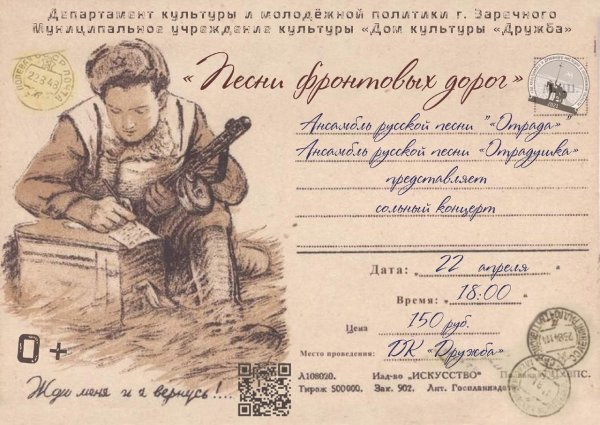 Департамент культуры и молодёжной политики г. Заречного
Муниципальное учреждение культуры «Дом культуры «Дружба»
22.3.43
« Песни фронтовых дорог»
Ансамбль русской песни "«Отрада» "
Ансамбль русской песни «Отрадушка»
представляет
сольный концерт
Дата: 22 апреля
Время: 18:00
Цена 150 руб.
Место проведения: ДК «Дружба»
0 +
Жди меня и я вернусь!....
Л108020. Изд-во „ИСКУССТВО"
Тираж 500000. Зак. 902. Лит. Госпланиздата.